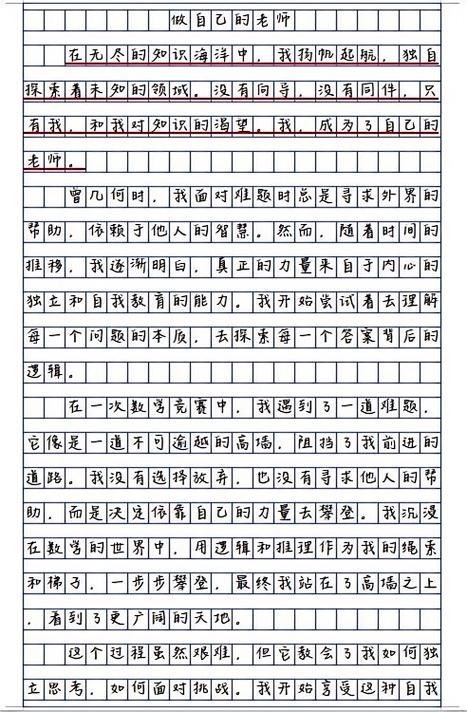 做自己的老师
在无尽的知识海洋中，我扬帆起航，独自
探索着未知的领域。没有向导，没有同伴，只
有我，和我对知识的渴望。我，成为了自己的
老师。
曾几何时，我面对难题时总是寻求外界的
帮助，依赖于他人的智慧。然而，随着时间的
推移，我逐渐明白，真正的力量来自于内心的
独立和自我教育的能力。我开始尝试着去理解
每一个问题的本质，去探索每一个答案背后的
逻辑。
在一次数学竞赛中，我遇到了一道难题，
它像是一道不可逾越的高墙，阻挡了我前进的
道路。我没有选择放弃，也没有寻求他人的帮
助，而是决定依靠自己的力量去攀登。我沉浸
在数学的世界中，用逻辑和推理作为我的绳索
和梯子，一步步攀登，最终我站在了高墙之上
，看到了更广阔的天地。
这个过程虽然艰难，但它教会了我如何独
立思考，如何面对挑战。我开始享受这种自我